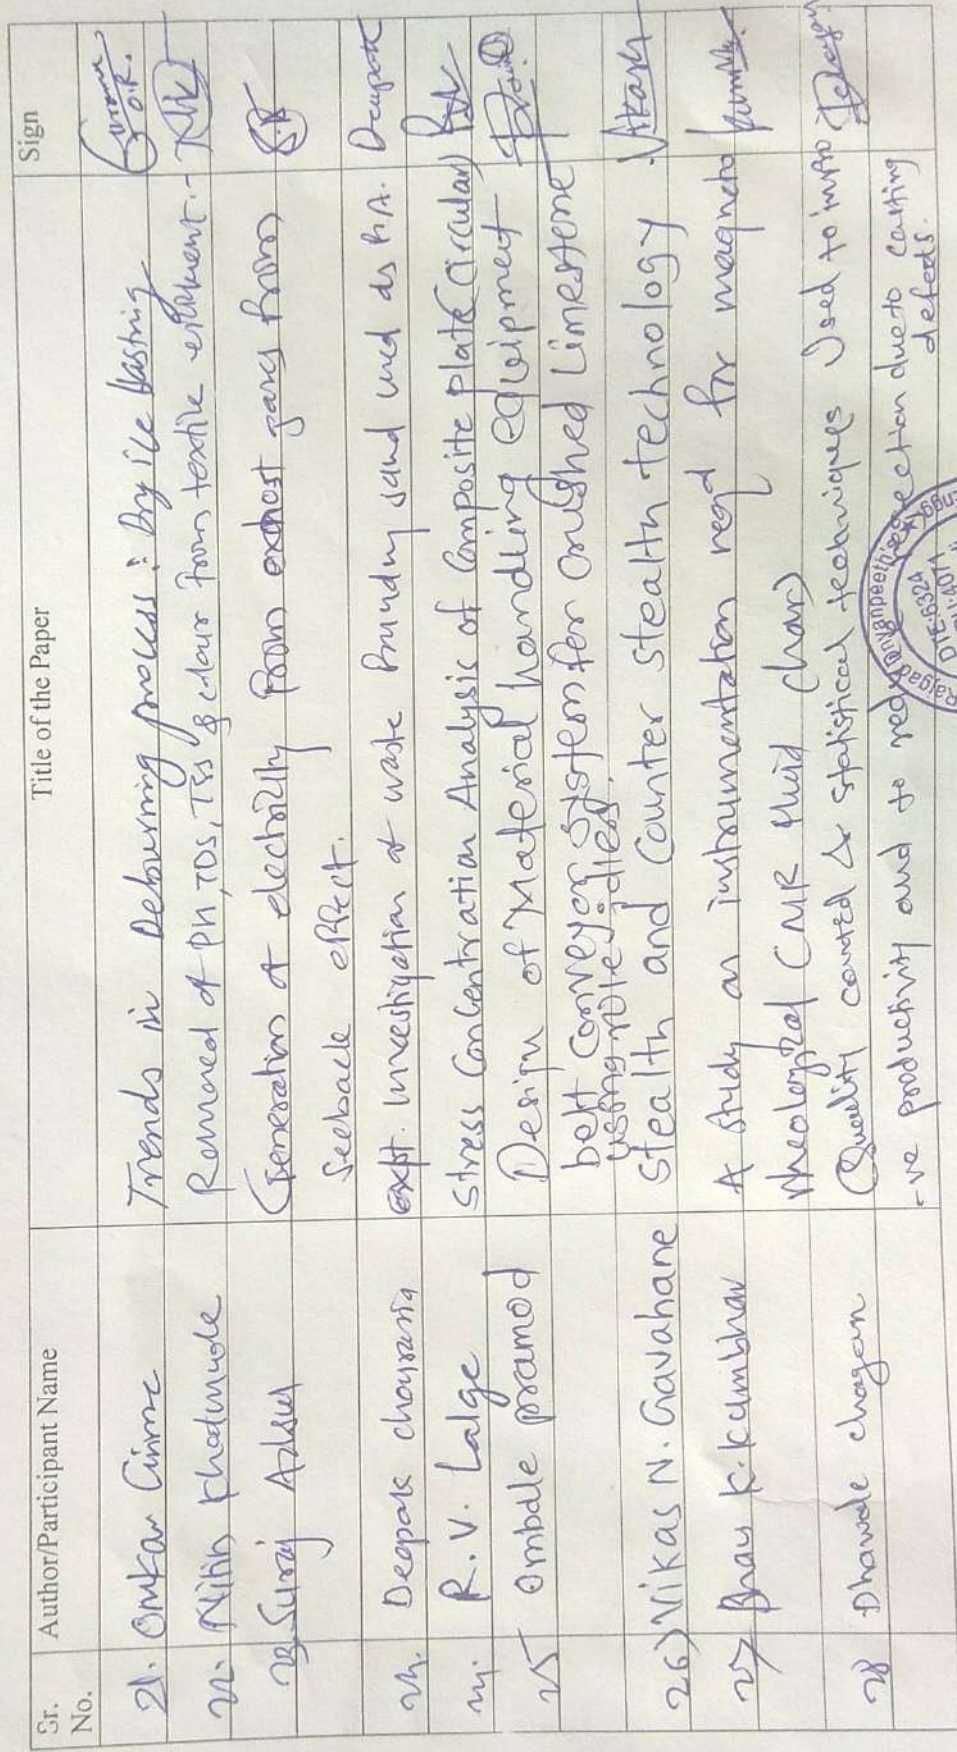 Sr. No. Author/Participant Name Title of the Paper Sign
21. Omkar Trends in Deburring process : Dry ice blasting
22. Nitin Khatmode Removed of PH, TDS, TSS & colour from textile effluent.-
23) Suraj Generation of electricity from exhost gases from
Seeback effect.
24. Deepak chourasia expt. investigation of waste foundry sand and as F.A. Deepak
R. V. Lalge Stress Concentration Analysis of Composite plate (Circular)
25 Ombale pramod Design of Material handling equipment
belt conveyor system for crushed Limestone
using idlers.
26) Vikas N. Gavahane Stealth and Counter stealth technology. Vikas
27) Bhau K. Kumbhar A study on instrumentation reqd for magneto
rheological (MR fluid char)
28 Dhawale chagan Quality control & statistical techniques Used to impro
-ve productivity and to rejection due to casting
defects.
DTE:6324